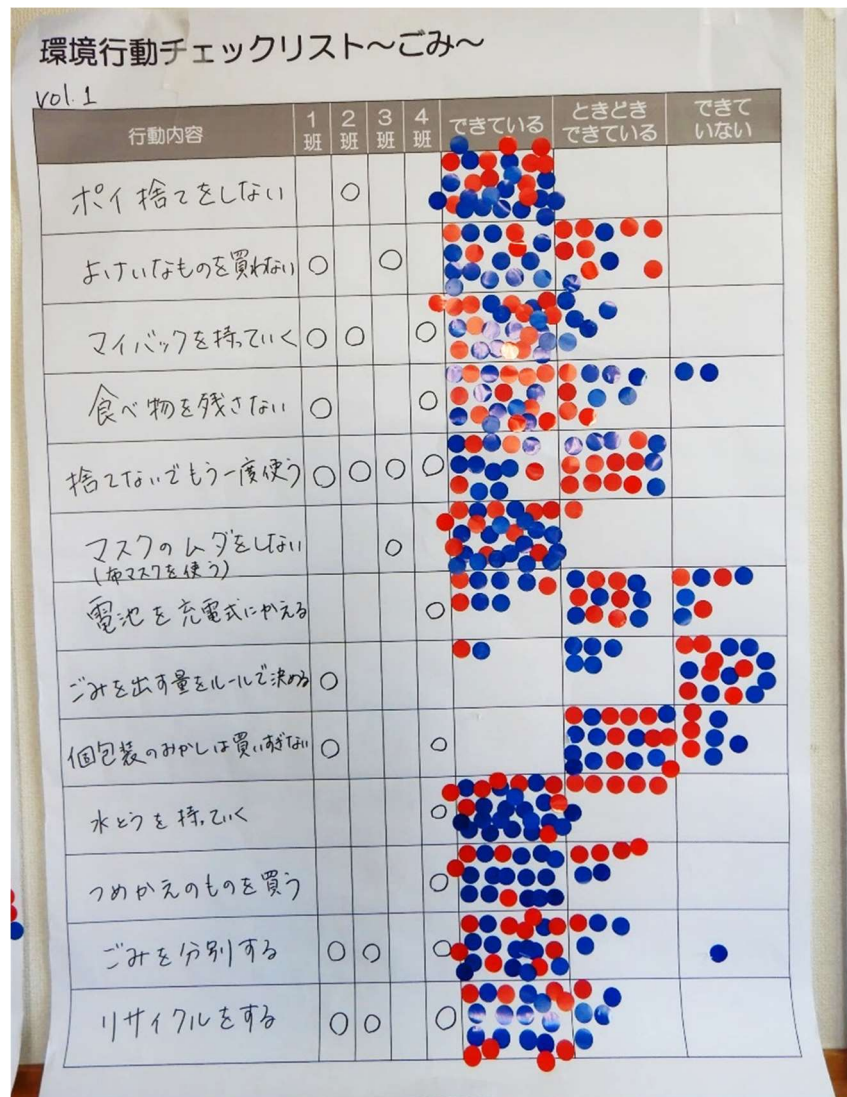 環境行動チェックリスト～ごみ～
vol.1
行動内容 1班 2班 3班 4班 できている ときどきできている できていない
ポイ捨てをしない ○
よけいなものを買わない ○ ○
マイバックを持っていく ○ ○ ○
食べ物を残さない ○ ○
捨てないでもう一度使う ○ ○ ○ ○
マスクのムダをしない ○
(布マスクを使う)
電池を充電式にかえる ○
ごみを出す量をルールで決める ○
個包装のおかしは買いすぎない ○ ○
水とうを持っていく ○
つめかえのものを買う ○
ごみを分別する ○ ○ ○
リサイクルをする ○ ○ ○